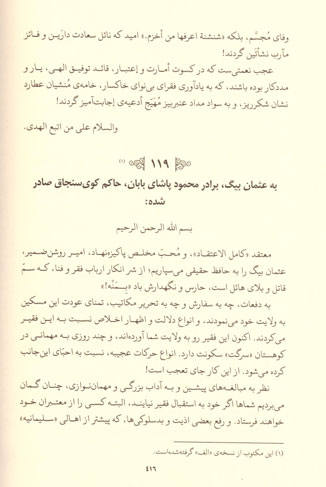 وفای مُجسَّم، بلکه «شنشنة اعرفها من أخزم.» امید که نائل سعادت دارَین و فائز
مآرب نشأتَین گردند!
عجب نعمتی‌ست که در کسوت اَمارت و اِعتبار، قائد توفیق الهی، یار و
مددکار بوده باشند، که به یادآوری فقرای بی‌نوای خاکسار، خامه‌ی مُنشیان عطارد
نشان شکرریز، و به سواد مداد عنبربیز مُهَیّج اَدعیه‌ی اِجابت‌آمیز گردند!
والسلام علی من اتبع الهدی.
۱۱۹ (۱)
به عثمان بیگ، برادر محمود پاشای بابان، حاکم کوی‌سنجاق صادر
شده:
بسم الله الرحمن الرحیم
معتقد «کامل الاعتقاد»، و مُحبّ مخلص پاکیزه‌نهاد، امیر روشن‌ضمیر،
عثمان بیگ را به حافظ حقیقی می‌سپاریم؛ از شر انکار ارباب فقر و فنا، که سمّ
قاتل و بلای هائل است، حارس و نگهدارش باد «بِمَنّه»!
به دفعات، چه به سفارش و چه به تحریر مکاتیب، تمنای عودت این مسکین
به ولایت خود می‌نمودند، و انواع دلالت و اظهار اخلاص نسبت به این فقیر
می‌کردند. اکنون این فقیر رو به ولایت شما آورده‌اند، و چند روزی به مهمانی در
کوهستان «سرگت» سکونت دارد. انواع حرکات عجیبه، نسبت به احبّای این‌جانب
کرده می‌شود. از این کار جای تعجب است!
نظر به مبالغه‌های پیشین و به آداب بزرگی و مهمان‌نوازی، چنان گمان
می‌بردیم شماها اگر خود به استقبال فقیر نیایند، البته کسی را از معتبران خود
خواهند فرستاد. و رفع بعضی اذیت و بدسلوکی‌ها، که پیشتر از اهالی «سلیمانیه»
(۱) این مکتوب از نسخه‌ی «الف» گرفته‌شده‌است.
۴۱۶